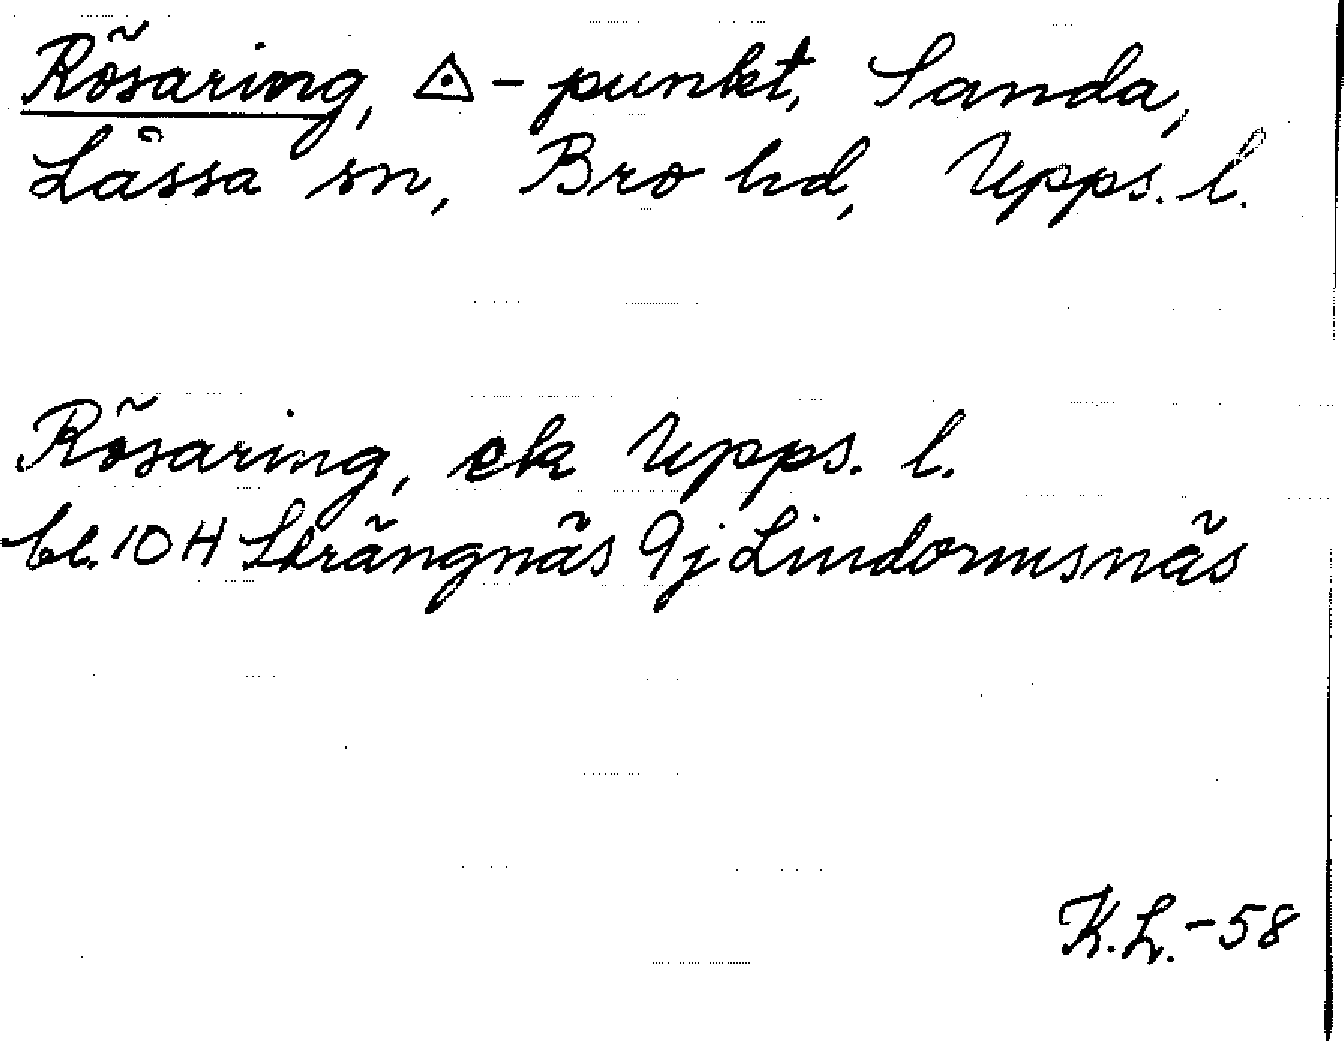 Rösaring, △-punkt, Sanda,
Låssa sn, Bro hd, Upps. l.
Rösaring, ek Upps. l.
bl. 10 H Strängnäs 9j Lindormsnäs
K.L.-58